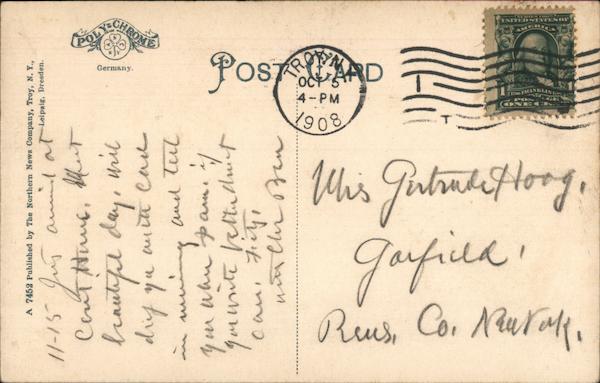 POLY-CHROME
Germany.
POST CARD
TROY, N.Y.
OCT 5
4-PM
1908
1
T
UNITED STATES OF
AMERICA
FRANKLIN
POSTAGE
ONE CENT
A 7452 Published by The Northern News Company, Troy, N. Y.,
Leipzig, Dresden.
11-15 Just arrived at
Cent House.
beautiful day, will
drop you another card
in morning and tell
you
you write letter direct
care.
Miss Gertrude Hoag,
Garfield,
Rens. Co. New York.